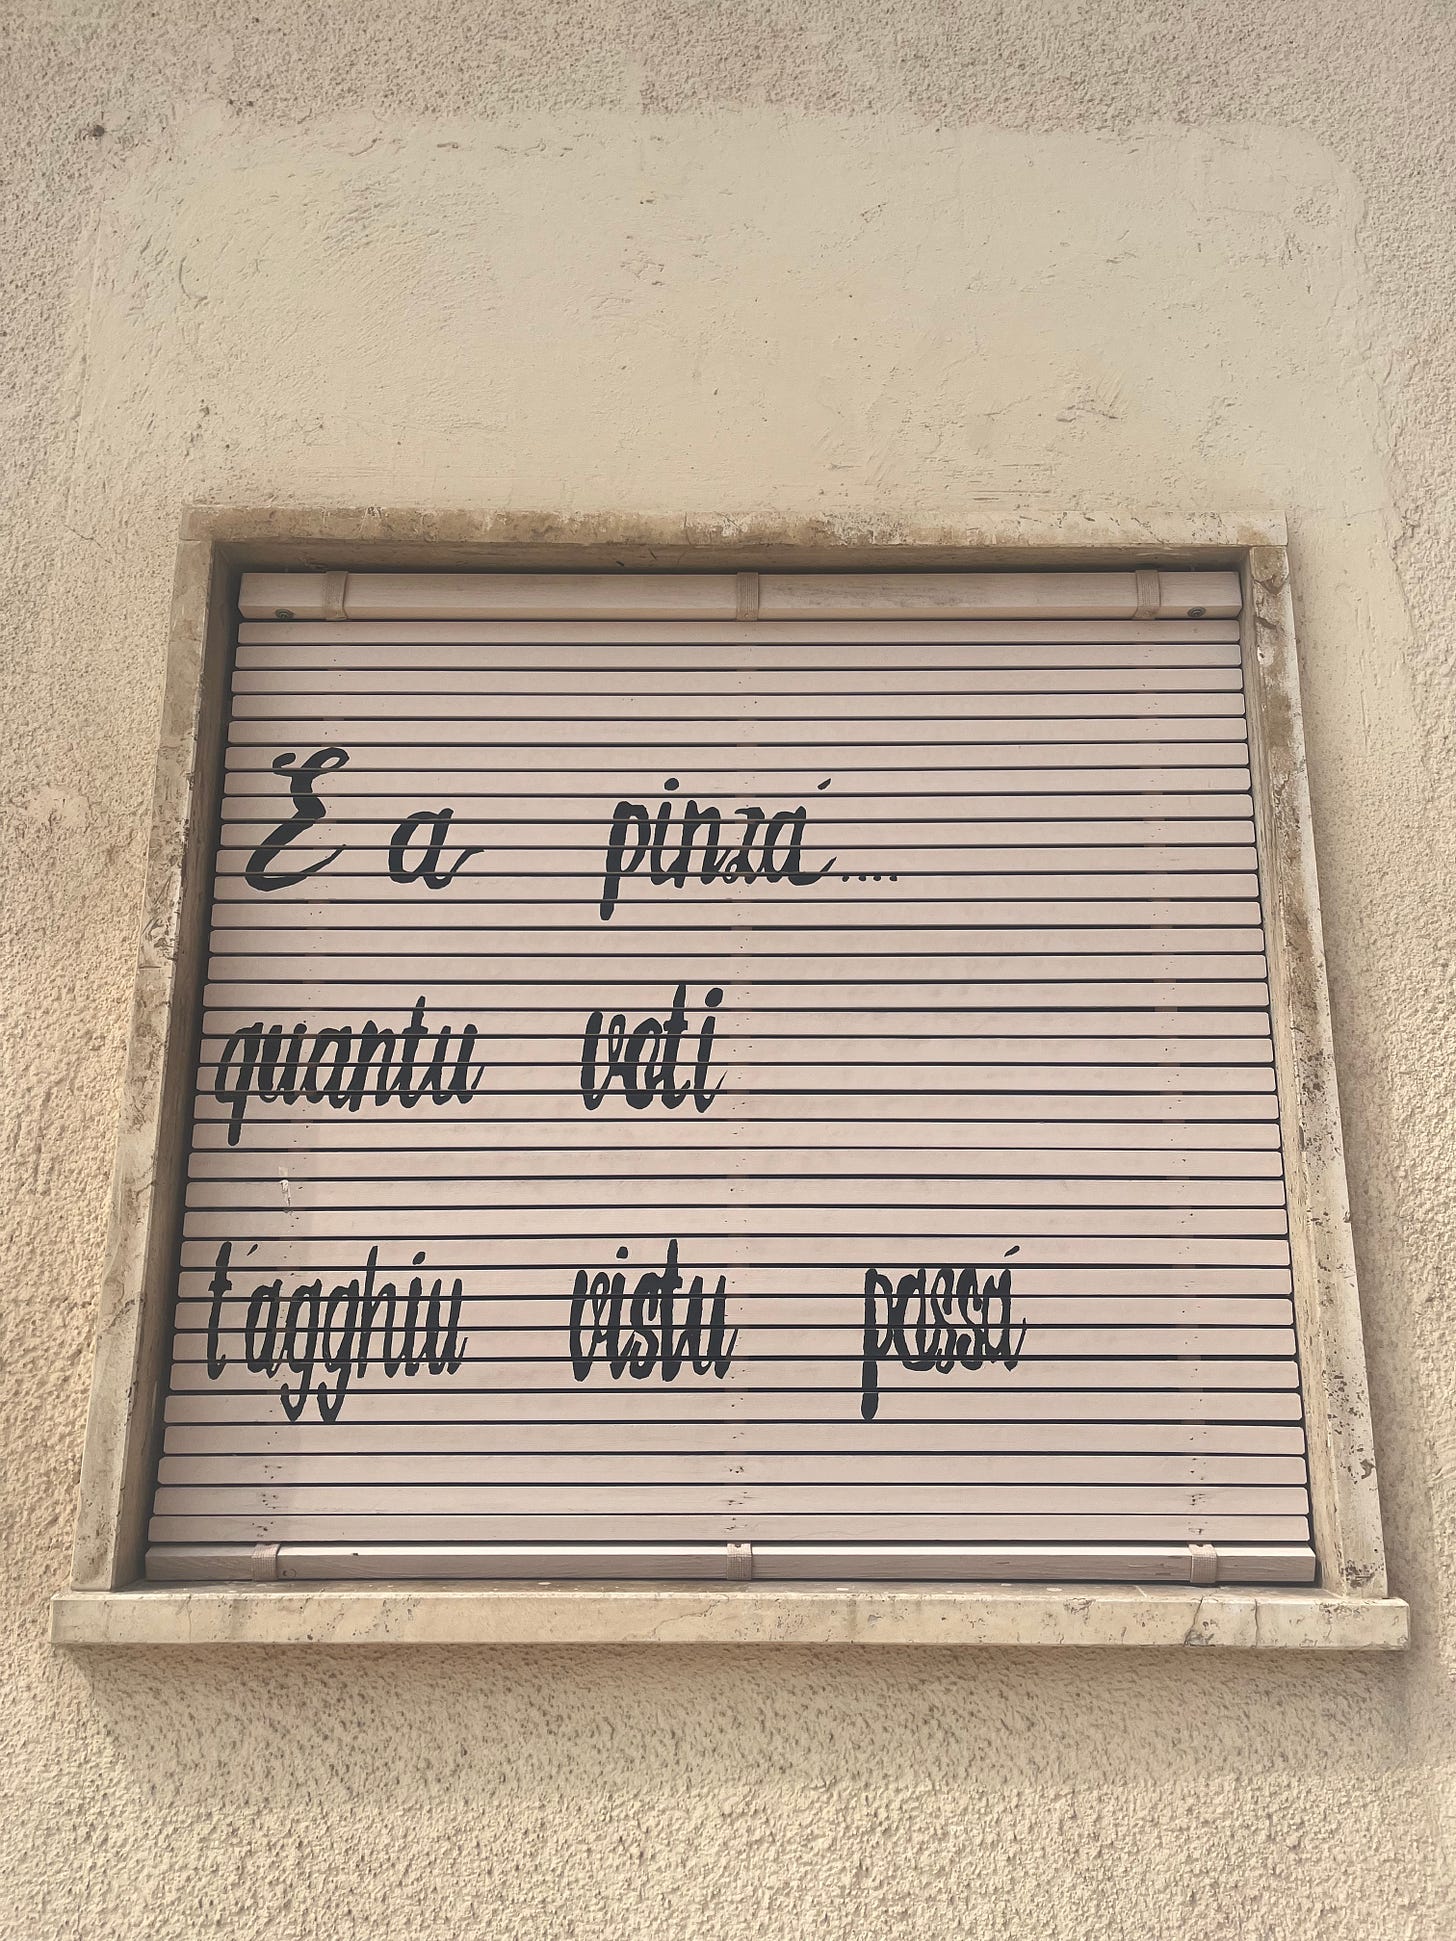 E a pinzá....
quantu voti
t'agghiu vistu passá